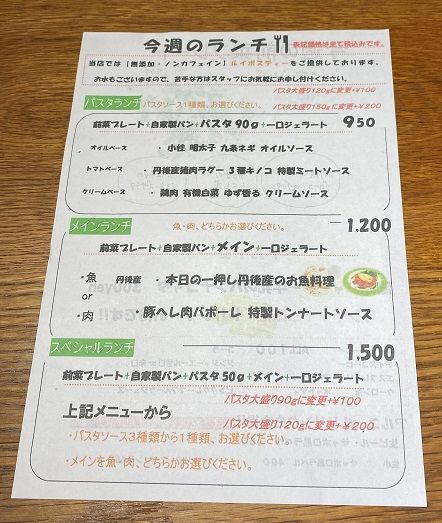 今週のランチ 表記価格は全て税込みです。
当店では［無添加・ノンカフェイン］ルイボスティーをご提供しております。
お水もございますので、苦手な方はスタッフにお気軽にお申し付けください。
パスタ大盛り120gに変更+¥100
パスタランチ パスタソース1種類、お選びください。 パスタ大盛り150gに変更+¥200
前菜プレート+自家製パン+パスタ90g+一口ジェラート 950
オイルベース ・小柱 明太子 九条ネギ オイルソース
トマトベース ・丹後産猪肉ラグー 3種キノコ 特製ミートソース
クリームベース ・鶏肉 有機白菜 ゆず香る クリームソース
メインランチ 魚・肉、どちらかお選びください。 1.200
前菜プレート+自家製パン+メイン+一口ジェラート
・魚 丹後産 ・本日の一押し丹後産のお魚料理
or
・肉 ・豚ヘレ肉バポーレ 特製トンナートソース
スペシャルランチ 1.500
前菜プレート+自家製パン+パスタ50g+メイン+一口ジェラート
パスタ大盛り90gに変更+¥100
上記メニューから パスタ大盛り120gに変更+¥200
・パスタソース3種類から1種類、お選びください。
・メインを魚・肉、どちらかお選びください。